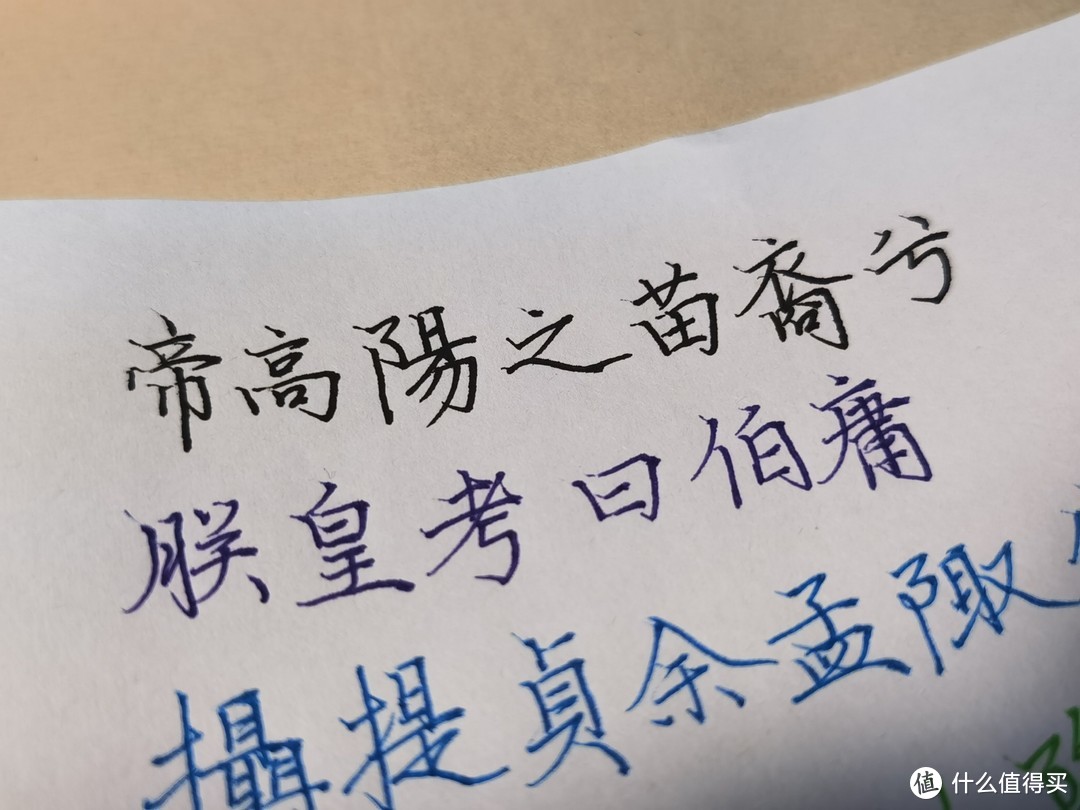 帝高陽之苗裔兮
朕皇考曰伯庸
攝提貞余孟陬
值 什么值得买